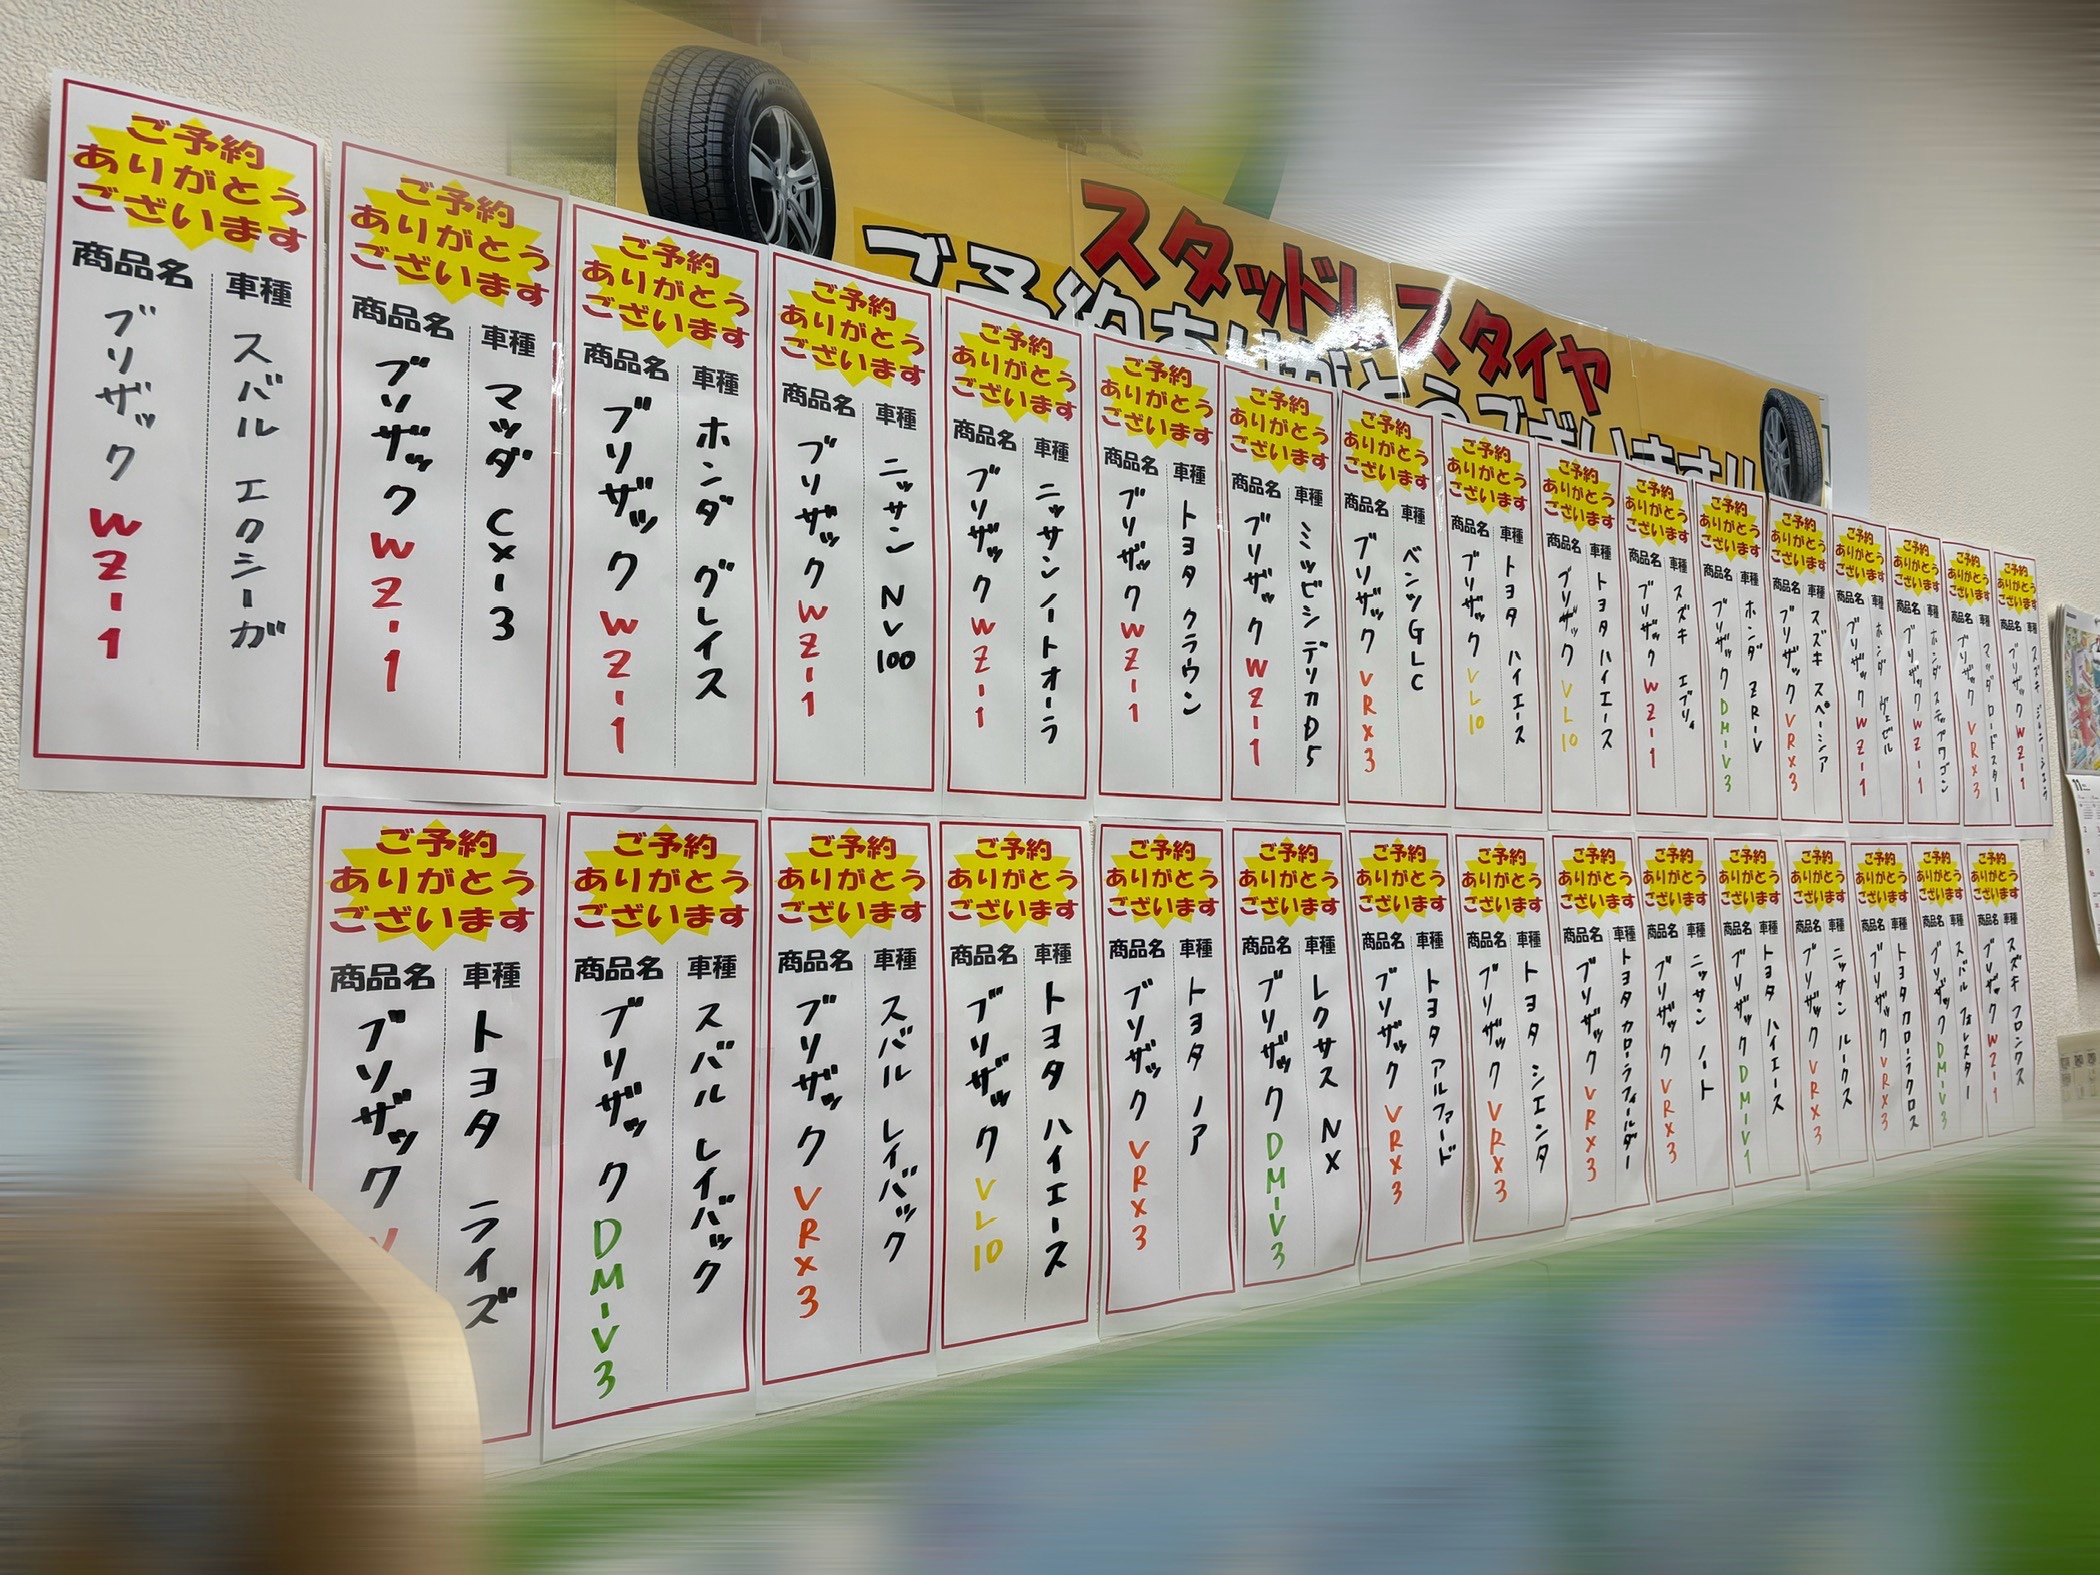 スタッドレスタイヤ
ご予約ありがとうございます!!
ご予約
ありがとう
ございます
商品名 車種
ブリザック WZ-1
スバル エクシーガ
ご予約
ありがとう
ございます
商品名 車種
ブリザック WZ-1
マツダ CX-3
ご予約
ありがとう
ございます
商品名 車種
ブリザック WZ-1
ホンダ グレイス
ご予約
ありがとう
ございます
商品名 車種
ブリザック WZ-1
ニッサン NV100
ご予約
ありがとう
ございます
商品名 車種
ブリザック WZ-1
ニッサン ノートオーラ
ご予約
ありがとう
ございます
商品名 車種
ブリザック WZ-1
トヨタ クラウン
ご予約
ありがとう
ございます
商品名 車種
ブリザック WZ-1
ミツビシ デリカD5
ご予約
ありがとう
ございます
商品名 車種
ブリザック VRX3
ベンツ GLC
ご予約
ありがとう
ございます
商品名 車種
ブリザック VL10
トヨタ ハイエース
ご予約
ありがとう
ございます
商品名 車種
ブリザック VL10
トヨタ ハイエース
ご予約
ありがとう
ございます
商品名 車種
ブリザック WZ-1
スズキ エブリィ
ご予約
ありがとう
ございます
商品名 車種
ブリザック DM-V3
ホンダ ZR-V
ご予約
ありがとう
ございます
商品名 車種
ブリザック VRX3
スズキ スペーシア
ご予約
ありがとう
ございます
商品名 車種
ブリザック WZ-1
ホンダ ヴェゼル
ご予約
ありがとう
ございます
商品名 車種
ブリザック WZ-1
ホンダ ステップワゴン
ご予約
ありがとう
ございます
商品名 車種
ブリザック VRX3
マツダ ロードスター
ご予約
ありがとう
ございます
商品名 車種
ブリザック WZ-1
スズキ ジムニーシエラ
ご予約
ありがとう
ございます
商品名 車種
ブリザック
トヨタ ライズ
ご予約
ありがとう
ございます
商品名 車種
ブリザック DM-V3
スバル レイバック
ご予約
ありがとう
ございます
商品名 車種
ブリザック VRX3
スバル レイバック
ご予約
ありがとう
ございます
商品名 車種
ブリザック VL10
トヨタ ハイエース
ご予約
ありがとう
ございます
商品名 車種
ブリザック VRX3
トヨタ ノア
ご予約
ありがとう
ございます
商品名 車種
ブリザック DM-V3
レクサス NX
ご予約
ありがとう
ございます
商品名 車種
ブリザック VRX3
トヨタ アルファード
ご予約
ありがとう
ございます
商品名 車種
ブリザック VRX3
トヨタ シエンタ
ご予約
ありがとう
ございます
商品名 車種
ブリザック VRX3
トヨタ カローラフィールダー
ご予約
ありがとう
ございます
商品名 車種
ブリザック VRX3
ニッサン ノート
ご予約
ありがとう
ございます
商品名 車種
ブリザック DM-V1
トヨタ ハイエース
ご予約
ありがとう
ございます
商品名 車種
ブリザック VRX3
ニッサン ルークス
ご予約
ありがとう
ございます
商品名 車種
ブリザック VRX3
トヨタ カローラクロス
ご予約
ありがとう
ございます
商品名 車種
ブリザック DM-V3
スバル フォレスター
ご予約
ありがとう
ございます
商品名 車種
ブリザック WZ-1
スズキ フロンクス
11